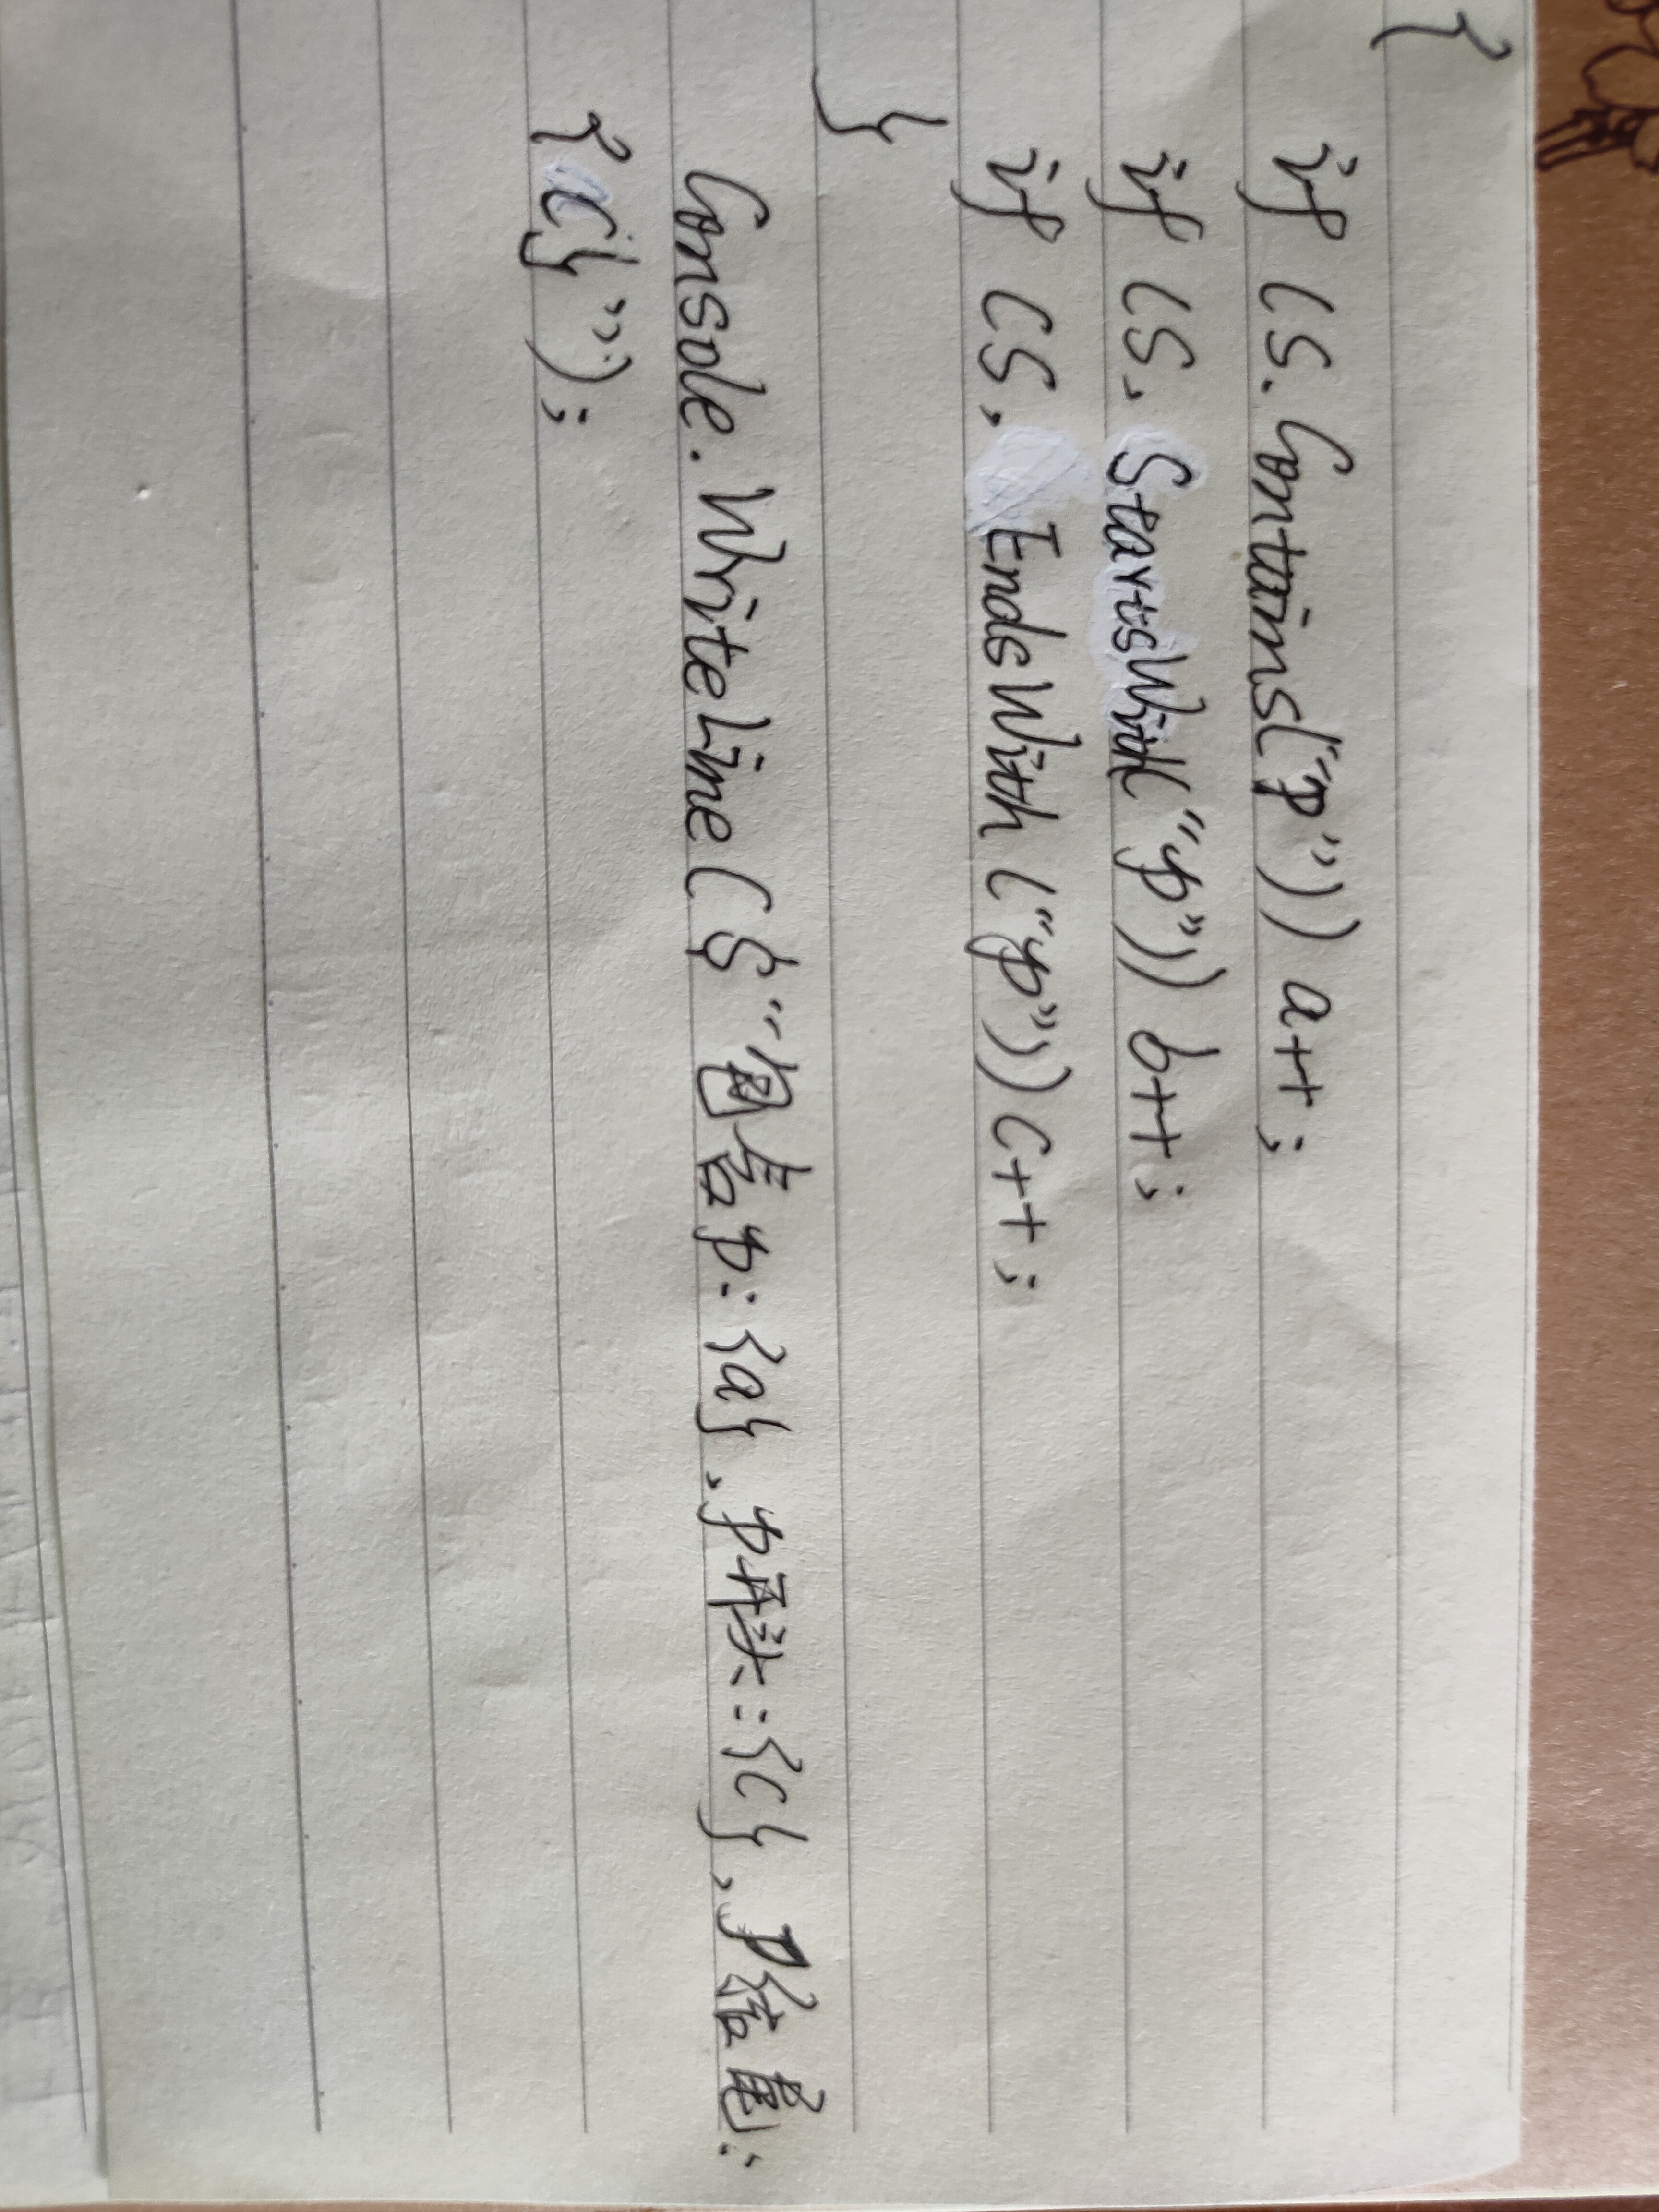 {
if (S.Contains("P")) a++;
if (S, StartsWith("p")) b++;
if (S, EndsWith ("p")) C++;
}
Console.WriteLine($"包含p: {a}, p开头: {C}, P结尾:
{C}");